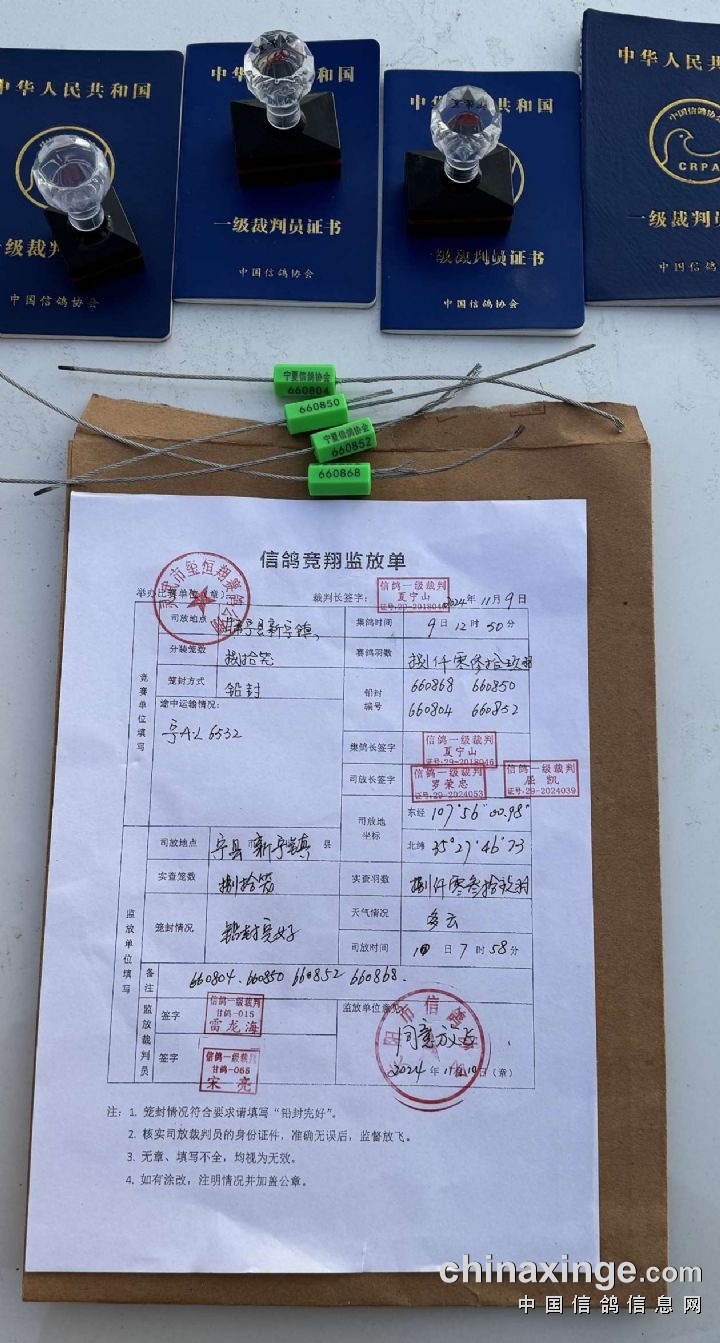 中华人民共和国
一级裁判
中国信鸽协会
中 和国
一级裁判员证书
中国信鸽协会
中 和国
一级裁判员证书
中国信鸽协会
中华人民共
中国信鸽协
CRPA
一级裁判员证
中国信鸽协
宁夏信鸽协会
660804
660850
宁夏信鸽协会
660852
660868
信鸽竞翔监放单
举办比赛单位（章） 裁判长签字： 信鸽一级裁判 夏宁山 证号:29-2018046 2024年11月9日
竞赛单位填写
司放地点 宁县新宁镇 集鸽时间 9日12时50分
分装笼数 捌拾笼 赛鸽羽数 捌仟零叁拾玖羽
笼封方式 铅封 铅封编号 660868 660850
660804 660852
途中运输情况：
宁A·L6532
集鸽长签字 信鸽一级裁判 夏宁山 证号:29-2018046
司放长签字 信鸽一级裁判 罗荣忠 证号:29-2024053 信鸽一级裁判 屈凯 证号:29-2024039
司放地坐标 东经 107°56'00.98"
北纬 35°27'46"73
监放单位填写
司放地点 宁县新宁镇 县
实查笼数 捌拾笼 实查羽数 捌仟零叁拾玖羽
笼封情况 铅封完好 天气情况 多云
司放时间 10日7时58分
备注 660804.660850 660852 660868.
监放裁判员
签字 信鸽一级裁判 甘鸽-015 雷龙海 监放单位意见
签字 信鸽一级裁判 甘鸽-065 宋亮 同意放飞
2024年11月10日（章）
注：1. 笼封情况符合要求请填写“铅封完好”。
2. 核实司放裁判员的身份证件，准确无误后，监督放飞。
3. 无章、填写不全，均视为无效。
4. 如有涂改，注明情况并加盖公章。
chinaxinge.com
中国信鸽信息网